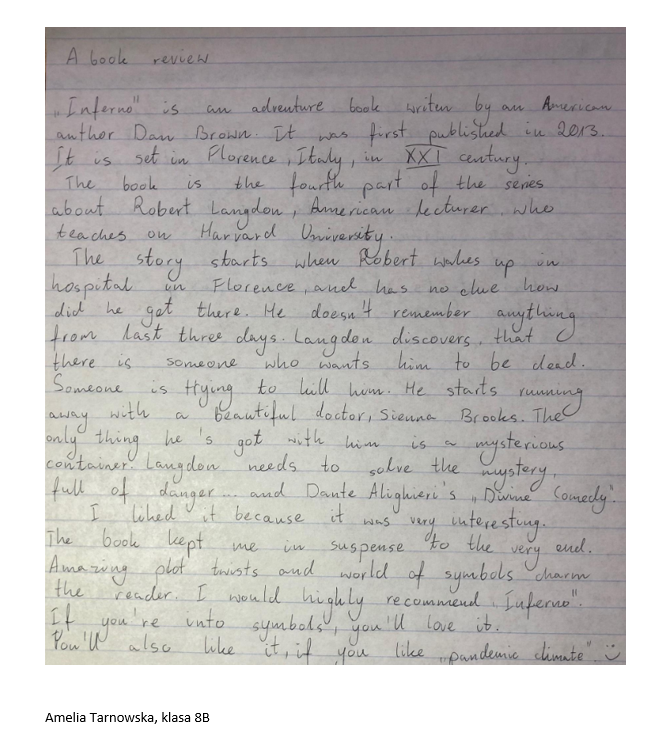 A book review
„Inferno" is an adventure book writen by an American
author Dan Brown. It was first published in 2013.
It is set in Florence, Italy, in XXI century.
The book is the fourth part of the series
about Robert Langdon, American lecturer, who
teaches on Harvard University.
The story starts when Robert wakes up in
hospital in Florence, and has no clue how
did he get there. He doesn't remember anything
from last three days. Langdon discovers, that
there is someone who wants him to be dead.
Someone is trying to kill him. He starts running
away with a beautiful doctor, Sienna Brooks. The
only thing he 's got with him is a mysterious
container. Langdon needs to solve the mystery,
full of danger... and Dante Alighieri's „Divine Comedy".
I liked it because it was very interesting.
The book kept me in suspense to the very end.
Amazing plot twists and world of symbols charm
the reader. I would highly recommend „Inferno".
If you're into symbols, you'll love it.
You'll also like it, if you like „pandemic climate" :)
Amelia Tarnowska, klasa 8B